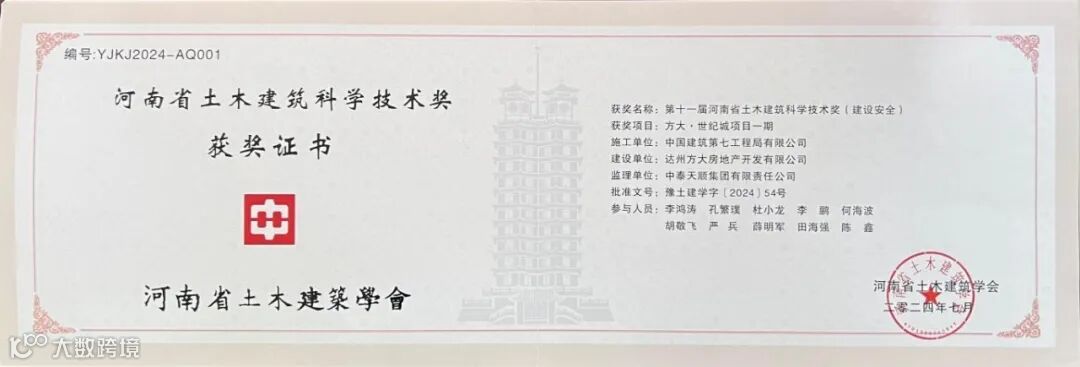 编号:YJKJ2024-AQ001
河南省土木建筑科学技术奖
获奖证书
河南省土木建築學會
获奖名称：第十一届河南省土木建筑科学技术奖（建设安全）
获奖项目：方大·世纪城项目一期
施工单位：中国建筑第七工程局有限公司
建设单位：达州方大房地产开发有限公司
监理单位：中泰天顺集团有限责任公司
批准文号：豫土建学字〔2024〕54号
参与人员：李鸿涛 孔繁璞 杜小龙 李鹏 何海波
胡敬飞 严兵 薛明军 田海强 陈鑫
河南省土木建筑学会
二零二四年七月
河南省土木建筑学会
大数跨境